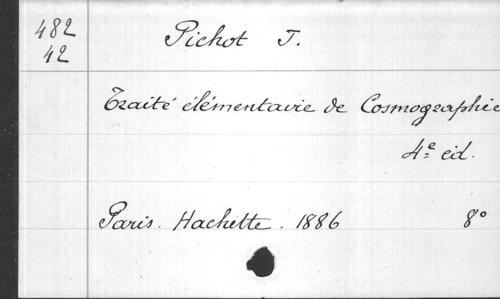 482
42
Pichot J.
Traité élémentaire de Cosmographie
4e éd.
Paris. Hachette. 1886 8°